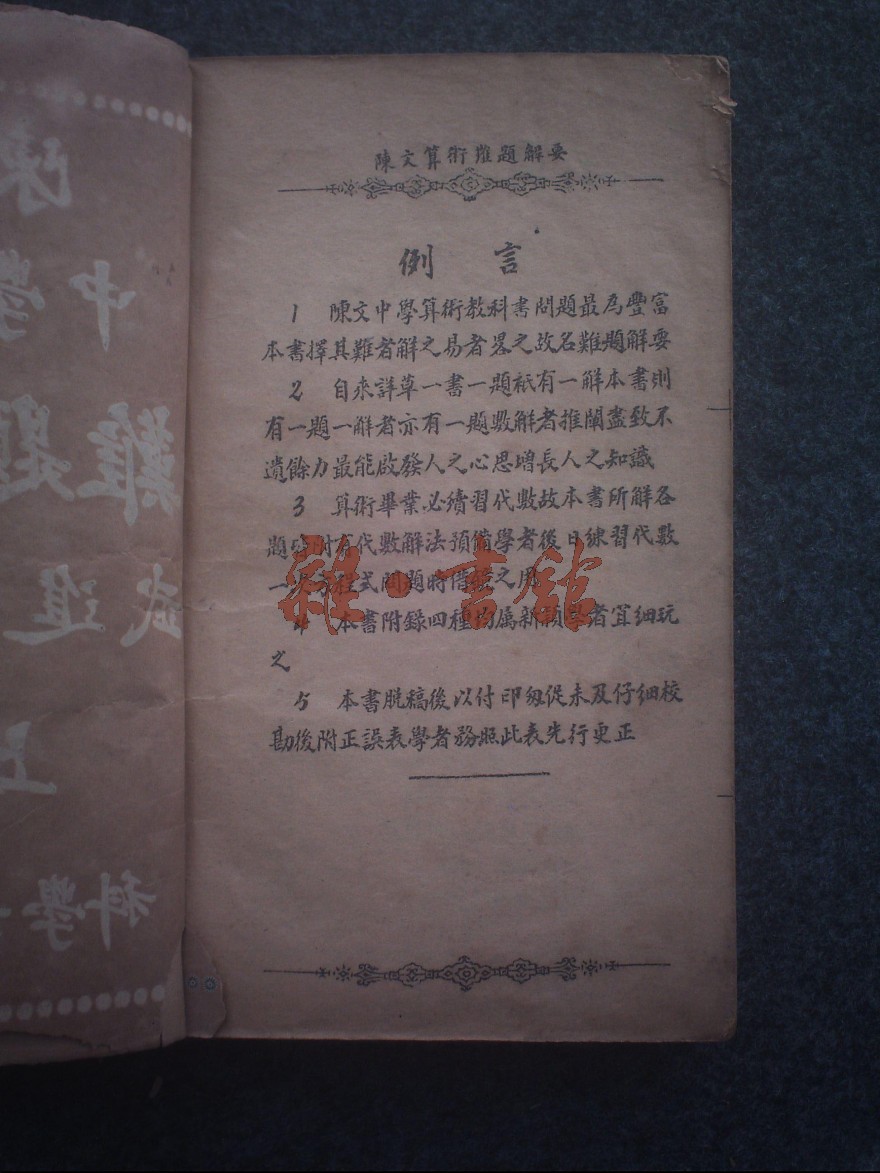 陳文算術難題解要
例言
1 陳文中學算術教科書問題最為豐富
本書擇其難者解之易者畧之故名難題解要
2 自來詳草一書一題祇有一解本書則
有一題一解者亦有一題數解者推闡盡致不
遺餘力最能啟發人之心思增長人之知識
3 算術畢業必續習代數故本書所解各
題 附有代數解法預備學者後日練習代數
一次方程式問題時借鏡之用
4 本書附錄四種均属新穎學者宜細玩
之
5 本書脫稿後以付印匆促未及仔細校
勘後附正誤表學者務照此表先行更正
雜·書館
陳
中學
難題
武進
上
科學